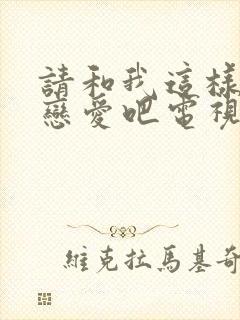 請和我這樣
戀愛吧電視
維克拉馬基奇